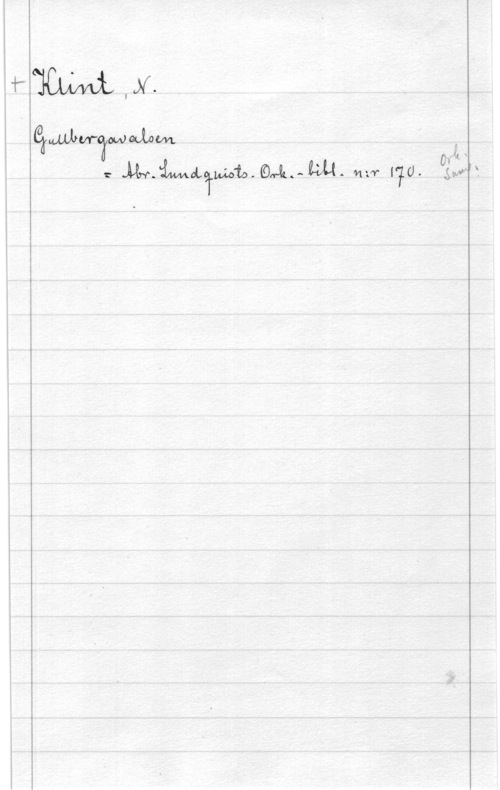 + Klint, N.
Gullbergavalsen
= Abr. Lundquists. Ork. - bibl. n:r 170.
Ork.
Saml.